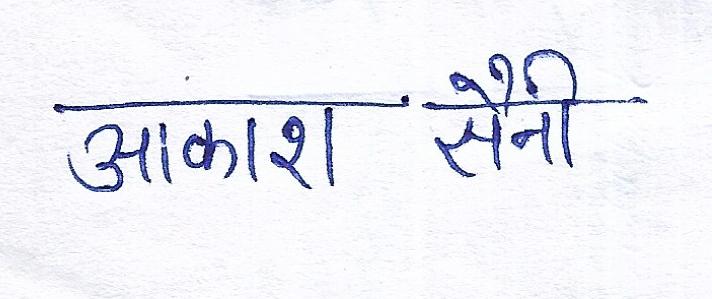 आकाश सैनी